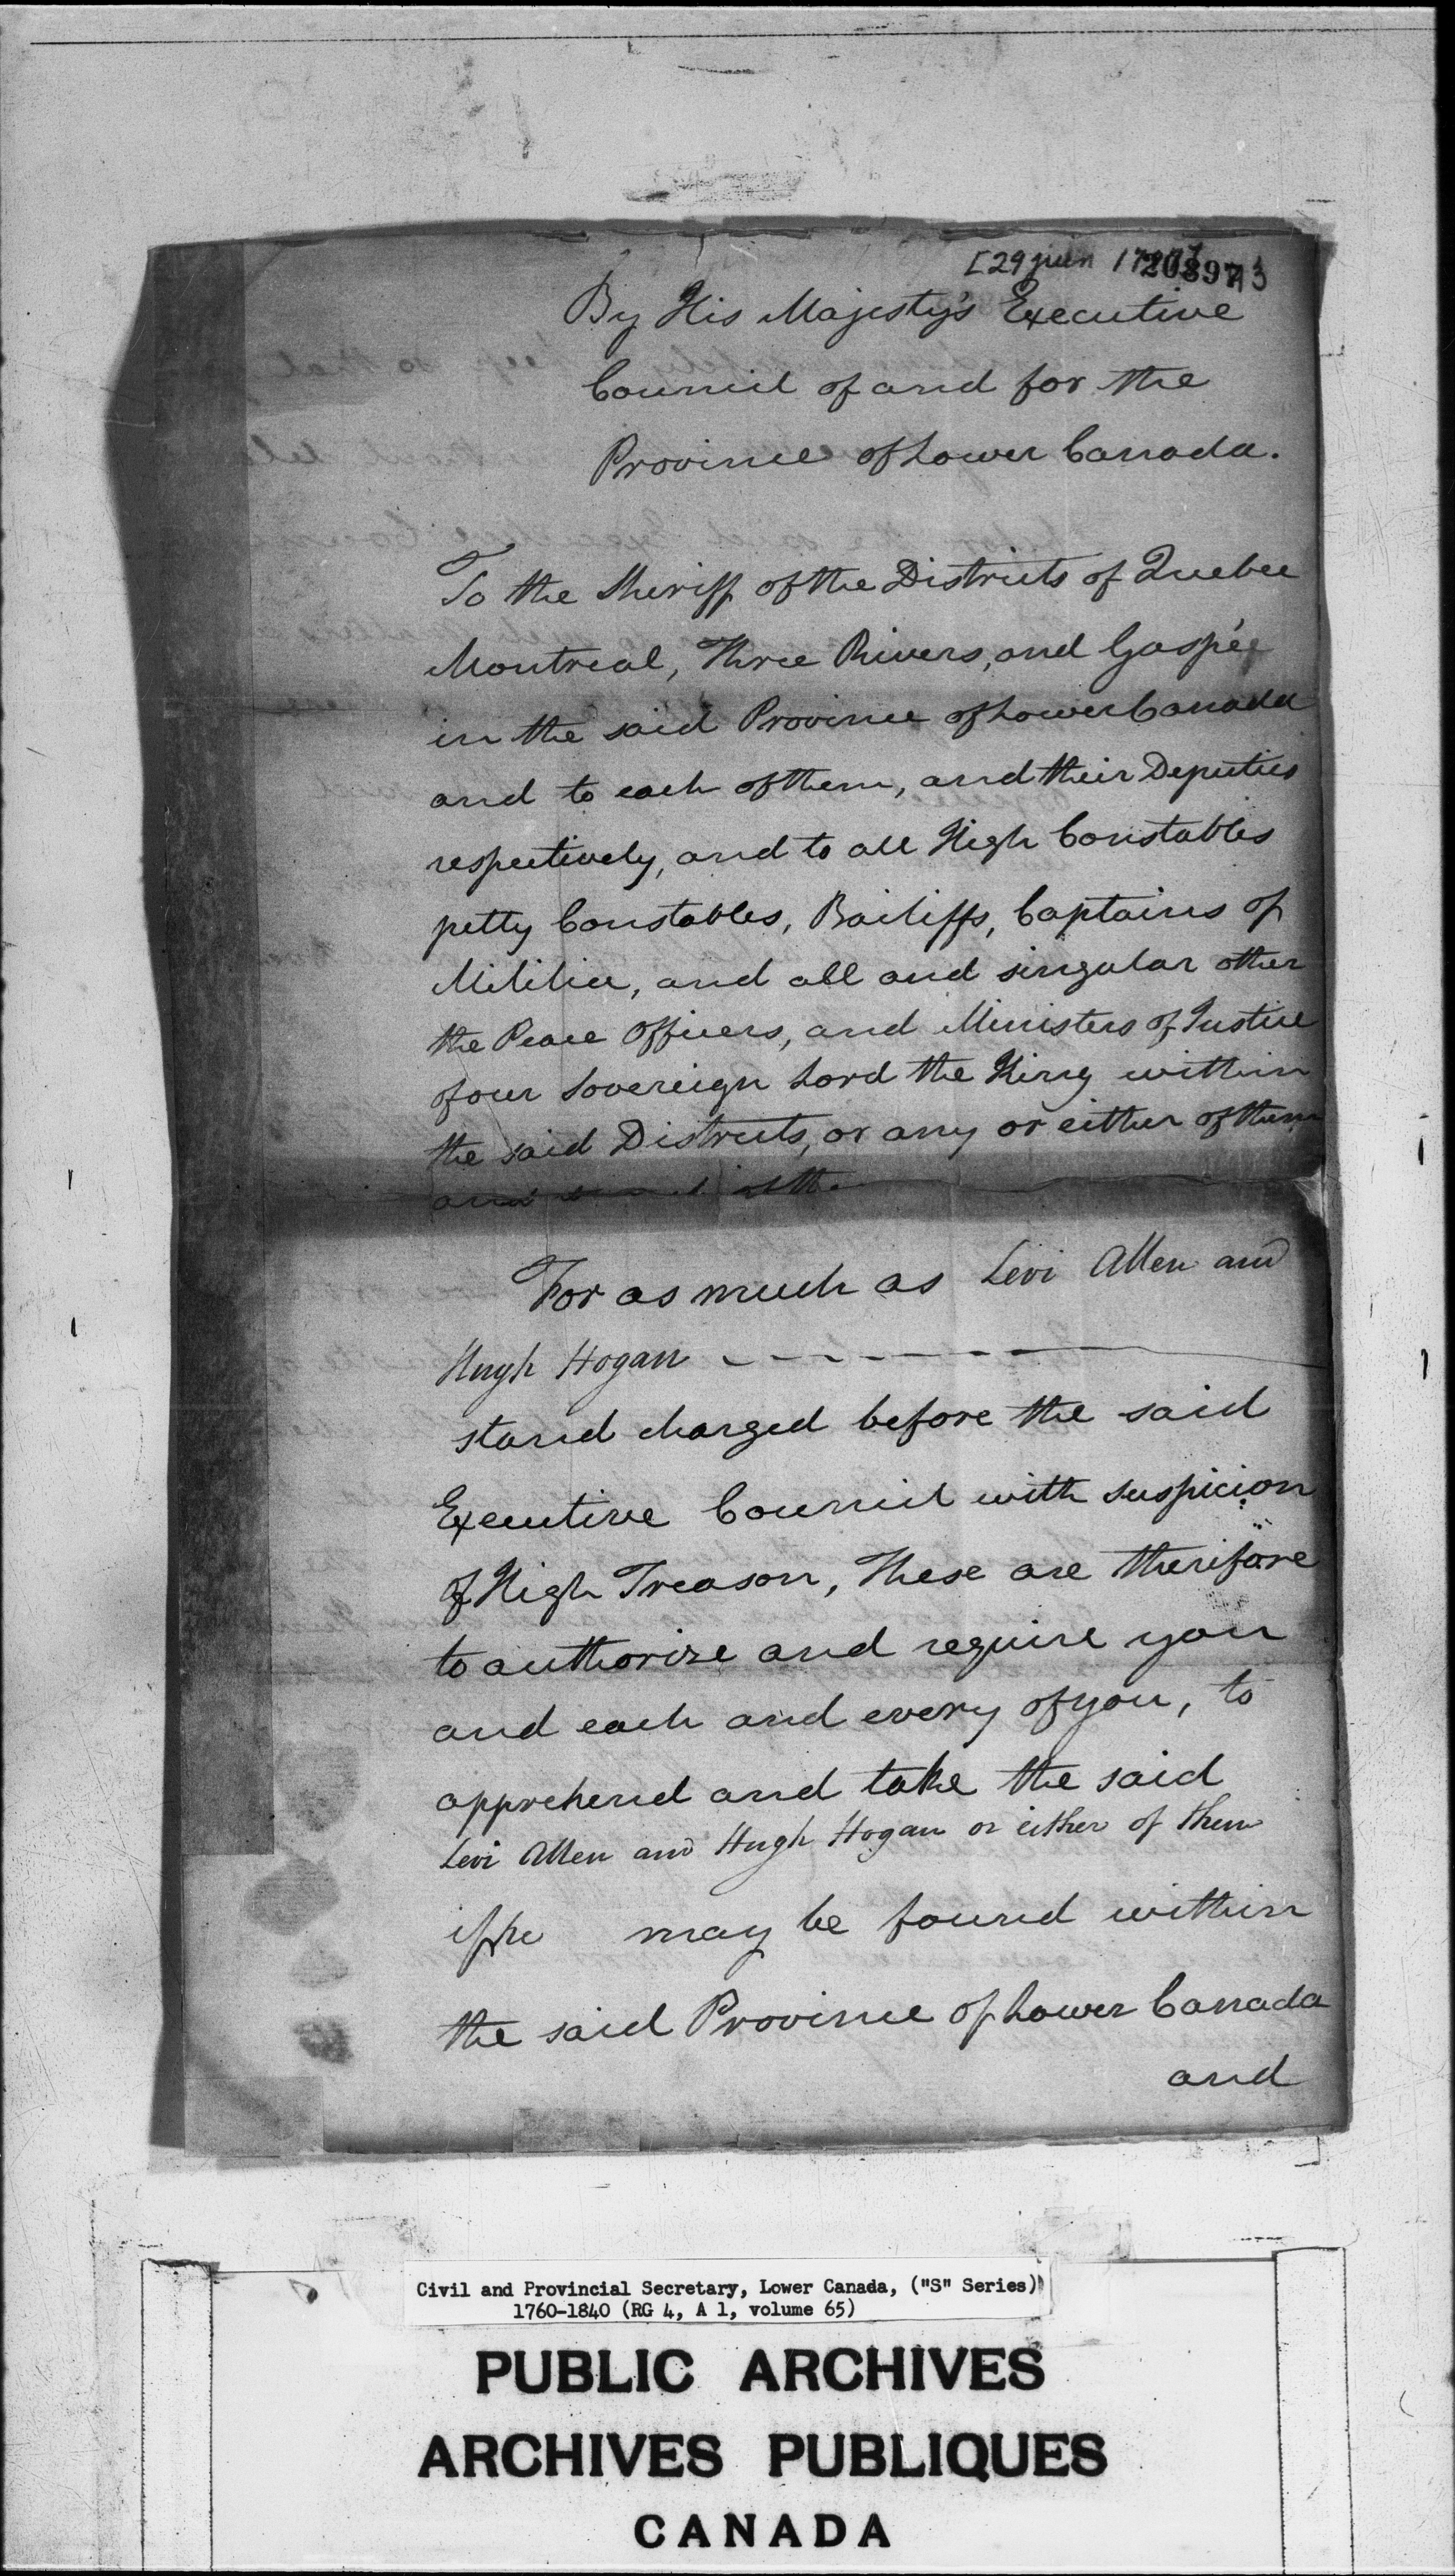 [29 juin 1797]
20897
By His Majesty's Executive
Council of and for the
Province of Lower Canada.
To the Sheriff of the Districts of Quebec
Montreal, Three Rivers, and Gaspée
in the said Province of Lower Canada
and to each of them, and their Deputies
respectively, and to all High Constables
petty Constables, Bailiffs, Captains of
Militia, and all and singular other
the Peace Officers, and Ministers of Justice
of our Sovereign Lord the King within
the said Districts, or any or either of them
and
For as much as Levi Allen and
Hugh Hogan
stand charged before the said
Executive Council with suspicion
of High Treason, These are therefore
to authorize and require you
and each and every of you, to
apprehend and take the said
Levi Allen and Hugh Hogan or either of them
if he may be found within
the said Province of Lower Canada
and
Civil and Provincial Secretary, Lower Canada, ("S" Series)
1760-1840 (RG 4, A 1, volume 65)
PUBLIC ARCHIVES
ARCHIVES PUBLIQUES
CANADA